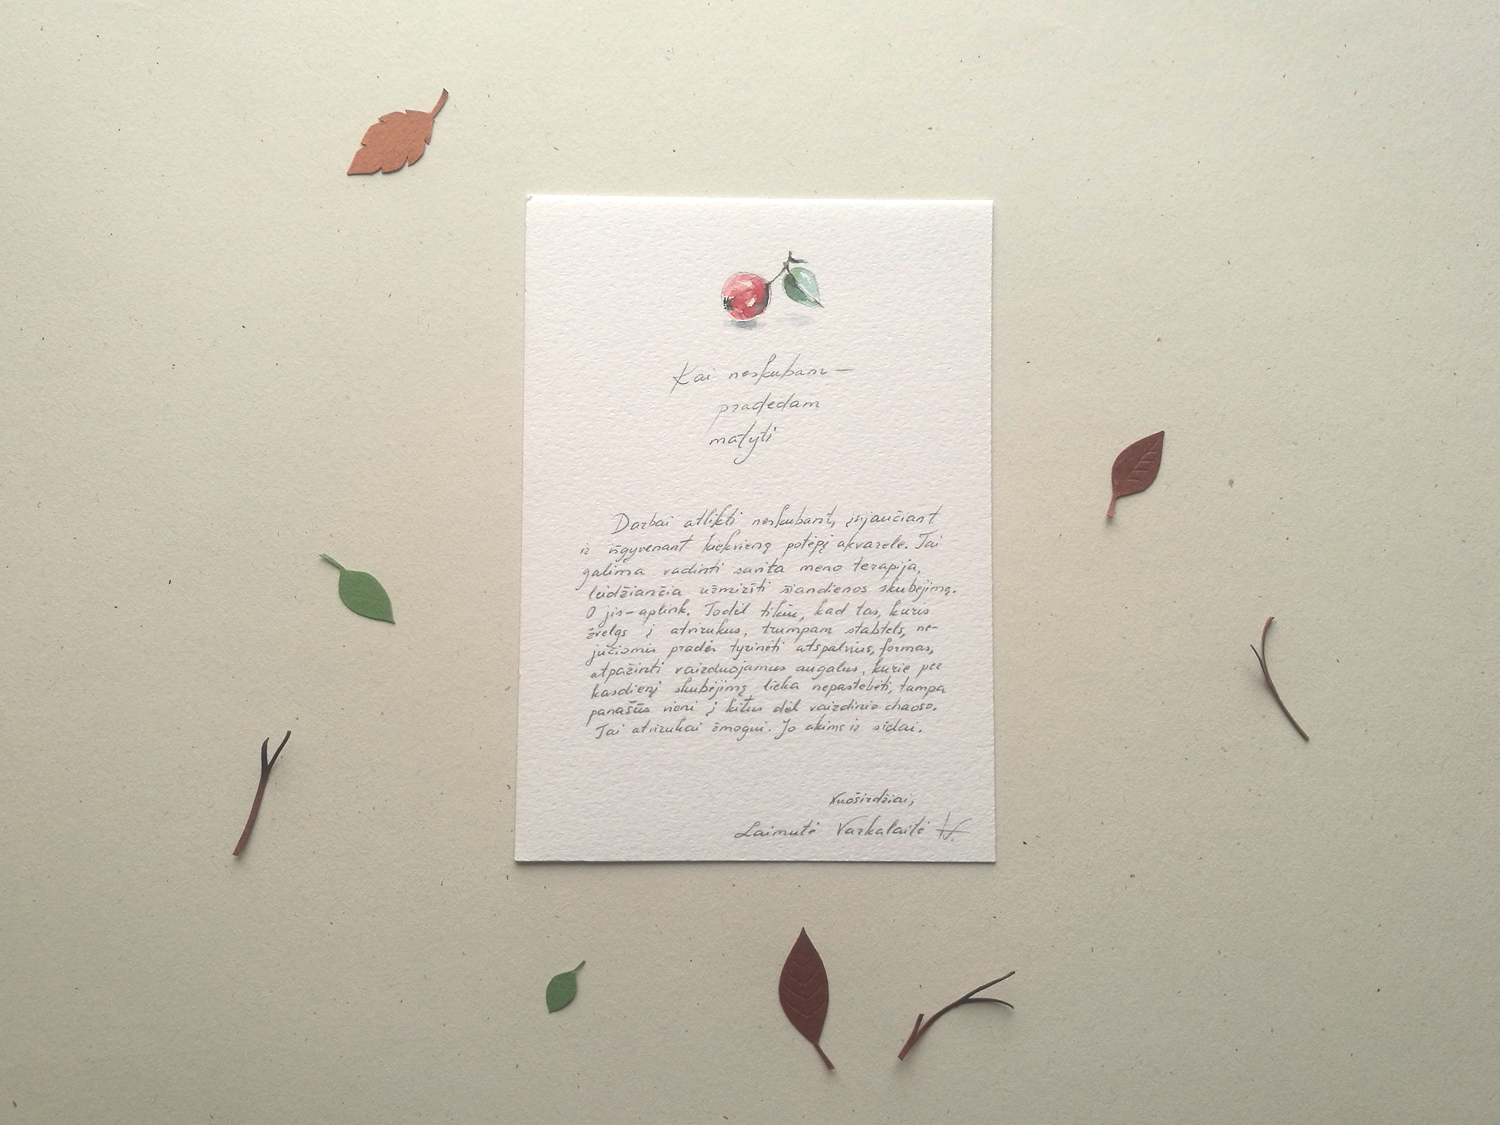 Kai neskubam –
pradedam
matyti
Darbai atlikti neskubant, įsijaučiant
ir išgyvenant kiekvieną potėpį akvarele. Tai
galima vadinti savita meno terapija,
leidžiančia užmiršti šiandienos skubėjimą.
O jis – aplink. Todėl tikiu, kad tas, kuris
žvelgs į atvirukus, trumpam stabtels, ne-
jučiomis pradės tyrinėti atspalvius, formas,
atpažinti vaizduojamus augalus, kurie per
kasdienį skubėjimą lieka nepastebėti, tampa
panašūs vieni į kitus dėl vaizdinio chaoso.
Tai atvirukai žmogui. Jo akims ir sielai.
Nuoširdžiai,
Laimutė Varkalaitė